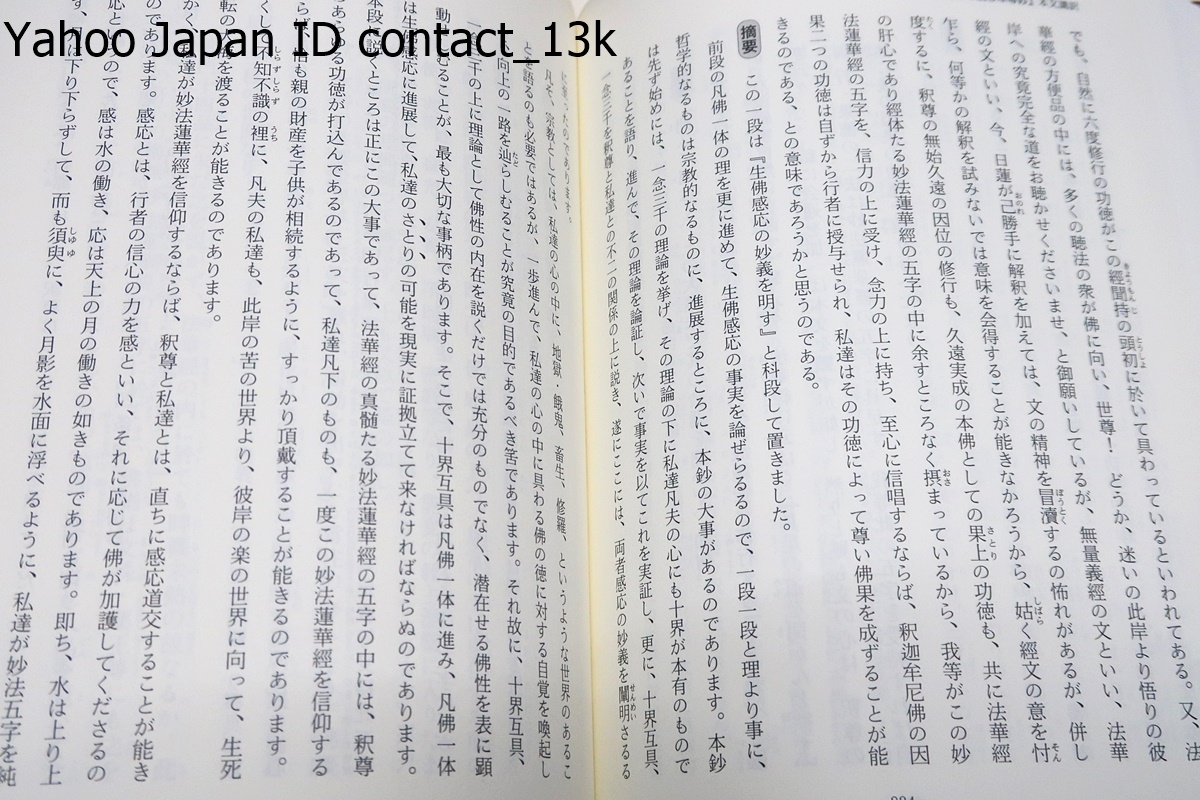 Yahoo Japan ID contact_13k
本文講訳
でも、自然に六度修行の功徳がこの經聞持の頭初に於いて具わっているといわれてある。又、法
華經の方便品の中には、多くの聴法の衆が佛に向い、世尊！　どうか、迷いの此岸より悟りの彼
岸への究竟完全な道をお聴かせくださいませ、と御願いしているが、無量義經の文といい、法華
經の文といい、今、日蓮が己勝手に解釈を加えては、文の精神を冒瀆するの怖れがあるが、併し
乍ら、何等かの解釈を試みないでは意味を会得することが能きなかろうから、姑く經文の意を忖
度するに、釈尊の無始久遠の因位の修行も、久遠実成の本佛としての果上の功徳も、共に法華經
の肝心であり經体たる妙法蓮華經の五字の中に余すところなく摂まっているから、我等がこの妙
法蓮華經の五字を、信力の上に受け、念力の上に持ち、至心に信唱するならば、釈迦牟尼佛の因
果二つの功徳は自ずから行者に授与せられ、私達はその功徳によって尊い佛果を成ずることが能
きるのである、との意味であろうかと思うのである。
摘要　この一段は『生佛感応の妙義を明す』と科段して置きました。
前段の凡佛一体の理を更に進めて、生佛感応の事実を論ぜらるるので、一段一段と理より事に、
哲学的なるものは宗教的なるものに、進展するところに、本鈔の大事があるのであります。本鈔
は先ず始めには、一念三千の理論を挙げ、その理論の下に私達凡夫の心にも十界が本有のもので
あることを語り、進んで、その理論を論証し、次いで事実を以てこれを実証し、更に、十界互具、
一念三千を釈尊と私達との不二の関係の上に説き、遂にここには、両者感応の妙義を闡明さるる
に来ったのであります。
凡そ、宗教としては、私達の心の中に、地獄・餓鬼、畜生、修羅、というような世界のあるこ
とを語るのも必要ではあるが、一歩進んで、私達の心の中に具わる佛の徳に対する自覚を喚起し
向上の一路を辿らしむることが究竟の目的であるべき筈であります。それ故に、十界互具、
一念三千の上に理論として佛性の内在を説くだけでは充分のものでなく、潜在せる佛性を表に顕
動せしむることが、最も大切な事柄であります。そこで、十界互具は凡佛一体に進み、凡佛一体
は生佛感応に進展して、私達のさとりの可能を現実に証拠立てて来なければならぬのであります。
本段に説くところは正にこの大事であって、法華經の真髄たる妙法蓮華經の五字の中には、釈尊
のあらゆる功徳が打込んであるのであって、私達凡下のものも、一度この妙法蓮華經を信仰する
ならば、恰も親の財産を子供が相続するように、すっかり頂戴することが能きるのであります。
くし不知不識の裡に、凡夫の私達も、此岸の苦の世界より、彼岸の楽の世界に向って、生死
転の大海を渡ることが能きるのであります。
かく私達が妙法蓮華經を信仰するならば、釈尊と私達とは、直ちに感応道交することが能き
のであります。感応とは、行者の信心の力を感といい、それに応じて佛が加護してくださるの
応というので、感は水の働き、応は天上の月の働きの如きものであります。即ち、水は上り上
ず、月は下り下らずして、而も須臾に、よく月影を水面に浮べるように、私達が妙法五字を純